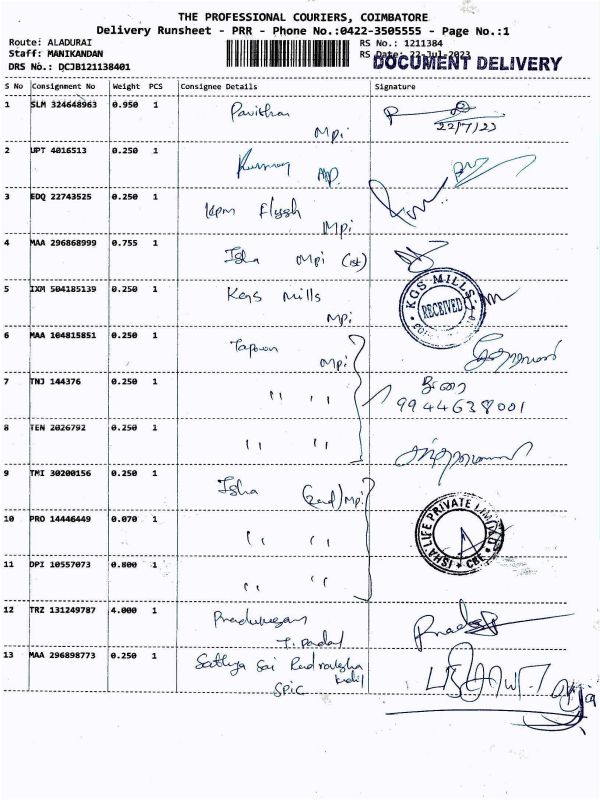 THE PROFESSIONAL COURIERS, COIMBATORE
Delivery Runsheet - PRR - Phone No.:0422-3505555 - Page No.:1
Route: ALADURAI RS No.: 1211384
Staff: MANIKANDAN RS Date: 22-Jul-2023
DOCUMENT DELIVERY
DRS No.: DCJB121138401
S No Consignment No Weight PCS Consignee Details Signature
1 SLM 324648963 0.950 1
Mpi 22/7/23
2 UPT 4016513 0.250 1
3 EDQ 22743525 0.250 1 Kpm
Mpi
4 MAA 296868999 0.755 1 Isha Mpi (1st)
5 IXM 504185139 0.250 1 Kgs Mills
Mpi
KGS MILLS
RECEIVED
6 MAA 104815851 0.250 1 Tapovan
Mpi
7 TNJ 144376 0.250 1 " "
9944638001
8 TEN 2026792 0.250 1 " "
9 TMI 30200156 0.250 1 Isha (2nd) Mpi
10 PRO 14446449 0.070 1 " "
ISHA LIFE PRIVATE LIMITED
CBE
11 DPI 10557073 0.800 1 " "
12 TRZ 131249787 4.000 1
13 MAA 296898773 0.250 1 Sathya Sai
SPIC